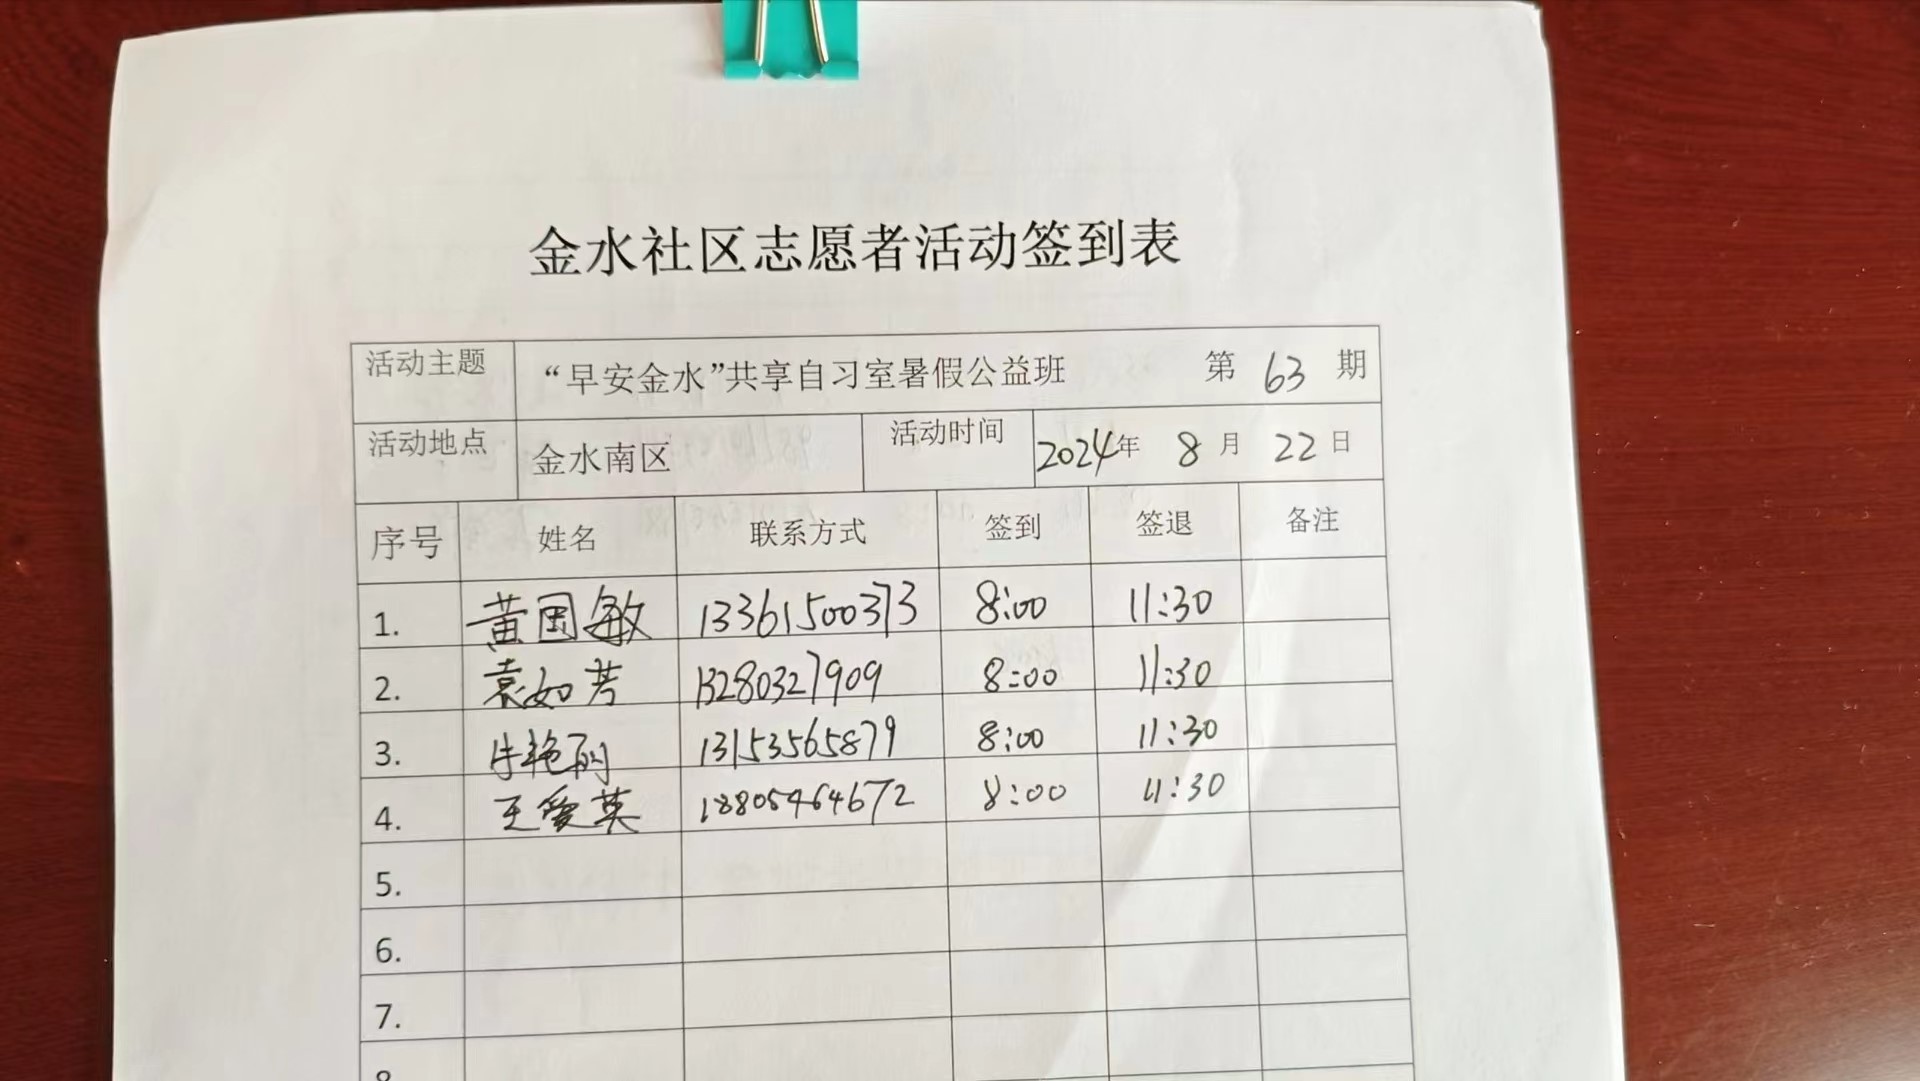 金水社区志愿者活动签到表
活动主题 “早安金水”共享自习室暑假公益班 第 63 期
活动地点 金水南区 活动时间 2024年 8月 22日
序号 姓名 联系方式 签到 签退 备注
1. 黄国敏 13361500373 8:00 11:30
2. 袁如芳 13280327909 8:00 11:30
3. 牛艳丽 13153565879 8:00 11:30
4. 王爱英 18805464672 8:00 11:30
5.
6.
7.